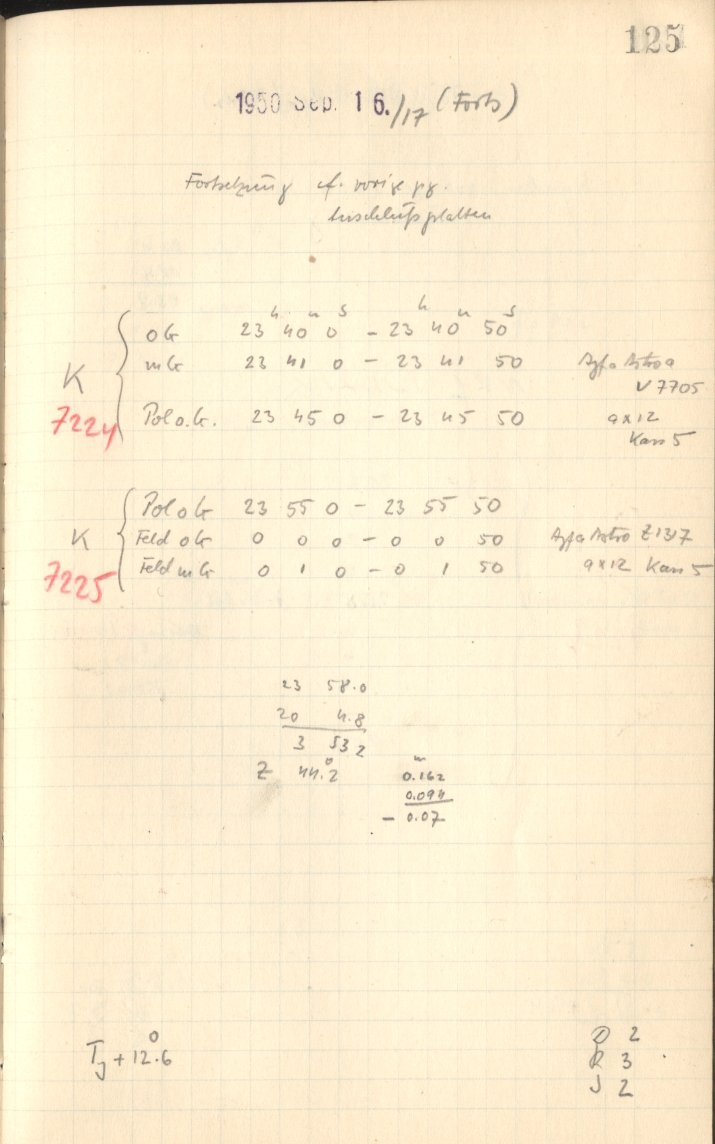 125
1950 Sep. 16./17 (Forts)
Fortsetzung cf. vorige pg.
Anschlußplatten
h m s h m s
oG 23 40 0 - 23 40 50
K mG 23 41 0 - 23 41 50 Agfa Astro
V 7705
7224 Pol o.G. 23 45 0 - 23 45 50 9x12
Kass 5
Pol oG 23 55 0 - 23 55 50
K Feld oG 0 0 0 - 0 0 50 Agfa Astro Z1317
7225 Feld mG 0 1 0 - 0 1 50 9x12 Kass 5
23 58.0
20 4.8
3 53 2
Z 44°.2 m 0.162
0.094
- 0.07
T + 12°.6
D 2
R 3
J 2